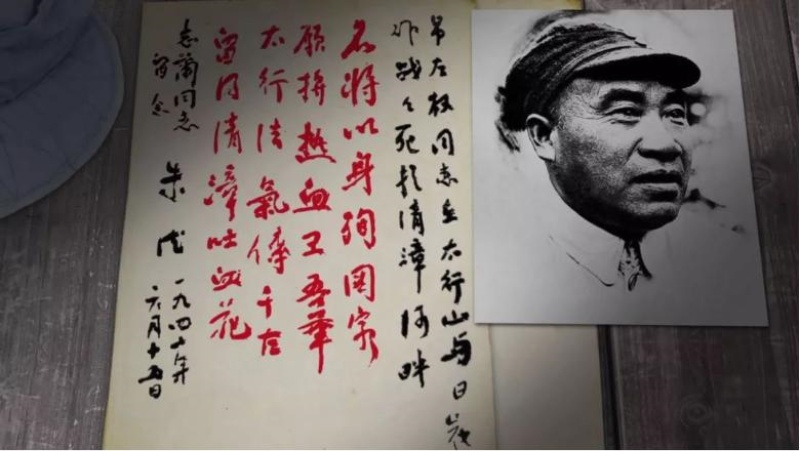 吊左权同志在太行山与日寇
作战々死於清漳河畔
名将以身殉国家
願拚熱血卫吾華
太行浩氣傳千古
留得清漳吐血花
志蘭同志
留念
朱德
一九四二年
六月十五日